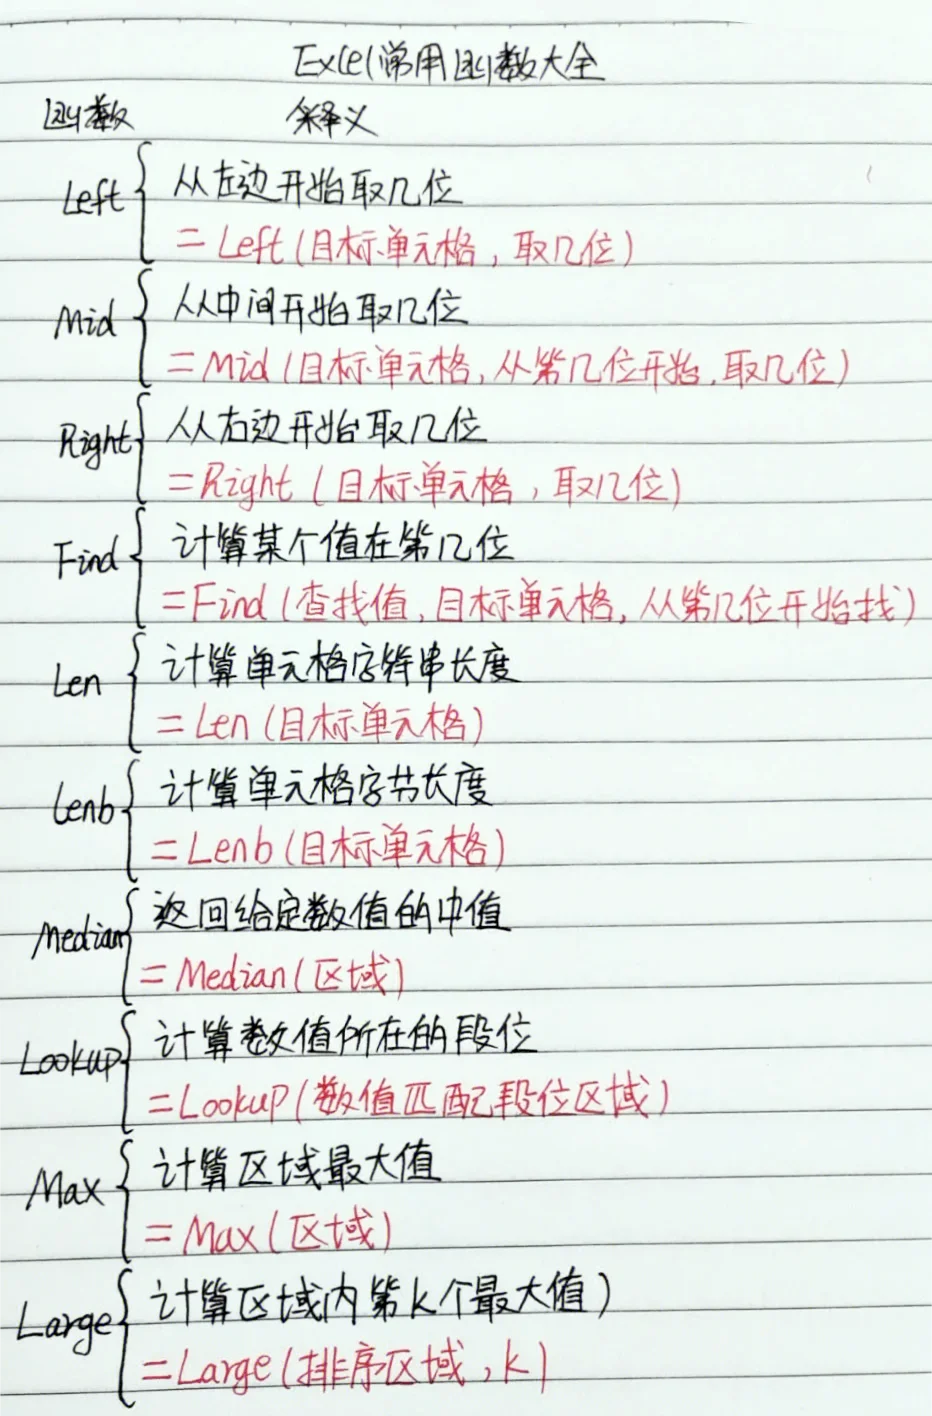 Excel常用函数大全
函数 释义
Left 从左边开始取几位
=Left(目标单元格,取几位)
Mid 从中间开始取几位
=Mid(目标单元格,从第几位开始,取几位)
Right 从右边开始取几位
=Right(目标单元格,取几位)
Find 计算某个值在第几位
=Find(查找值,目标单元格,从第几位开始找)
Len 计算单元格字符串长度
=Len(目标单元格)
Lenb 计算单元格字节长度
=Lenb(目标单元格)
Median 返回给定数值的中值
=Median(区域)
Lookup 计算数值所在的段位
=Lookup(数值匹配段位区域)
Max 计算区域最大值
=Max(区域)
Large 计算区域内第k个最大值)
=Large(排序区域,k)